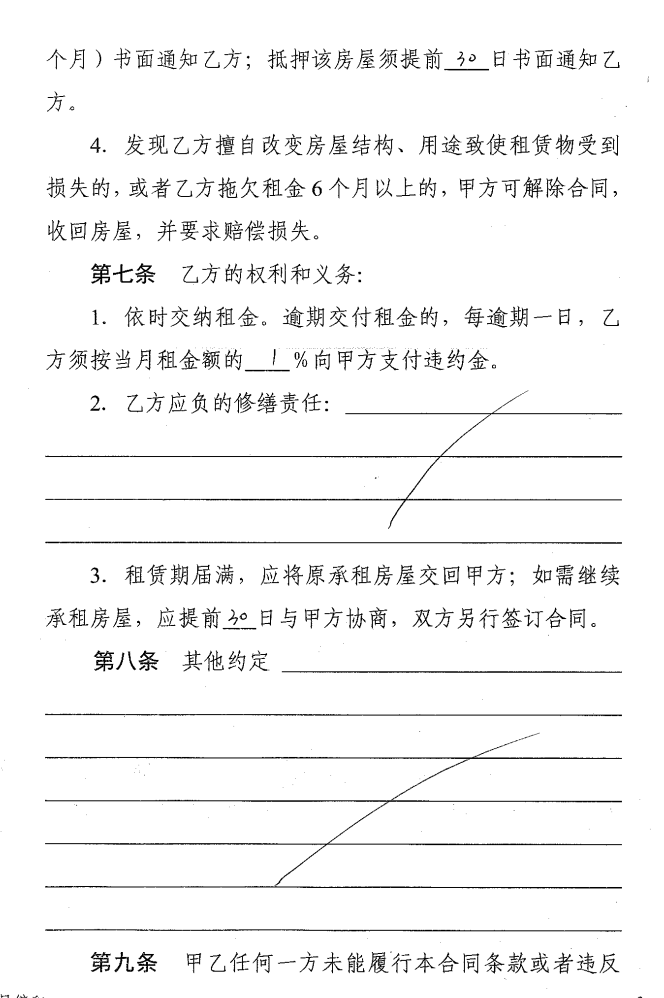 个月）书面通知乙方；抵押该房屋须提前30日书面通知乙
方。
4. 发现乙方擅自改变房屋结构、用途致使租赁物受到
损失的，或者乙方拖欠租金6个月以上的，甲方可解除合同，
收回房屋，并要求赔偿损失。
第七条 乙方的权利和义务：
1. 依时交纳租金。逾期交付租金的，每逾期一日，乙
方须按当月租金额的1%向甲方支付违约金。
2. 乙方应负的修缮责任：
3. 租赁期届满，应将原承租房屋交回甲方；如需继续
承租房屋，应提前30日与甲方协商，双方另行签订合同。
第八条 其他约定
第九条 甲乙任何一方未能履行本合同条款或者违反